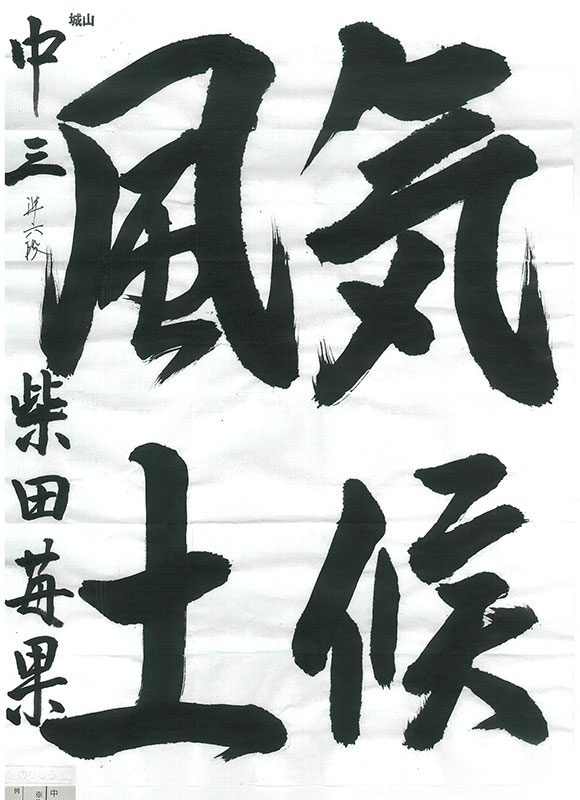 気候
風土
城山
中三 準六段 柴田苺果